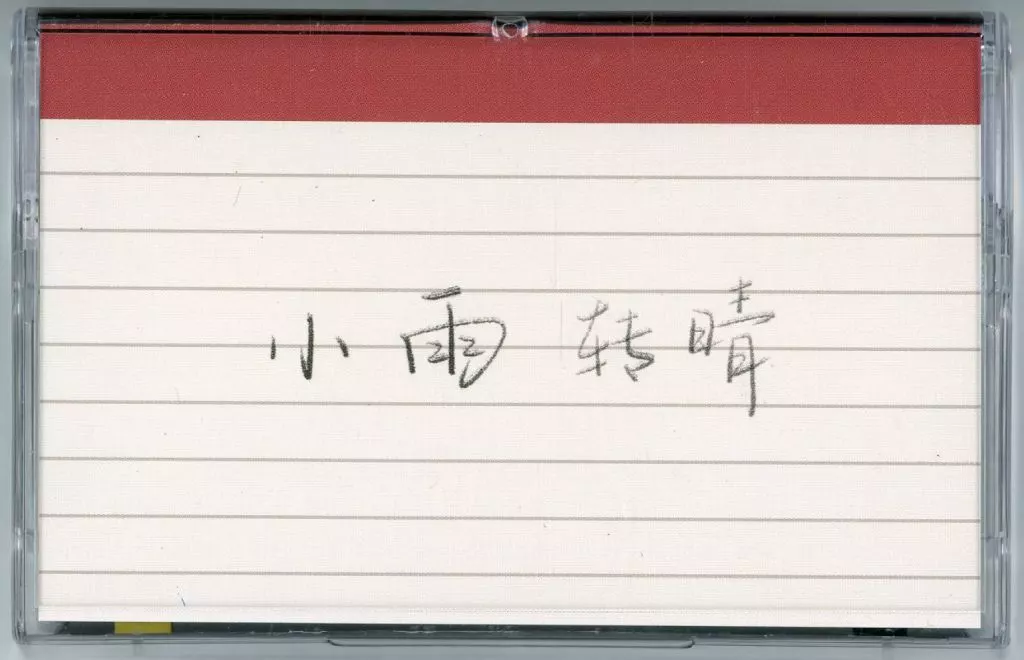 小雨转晴